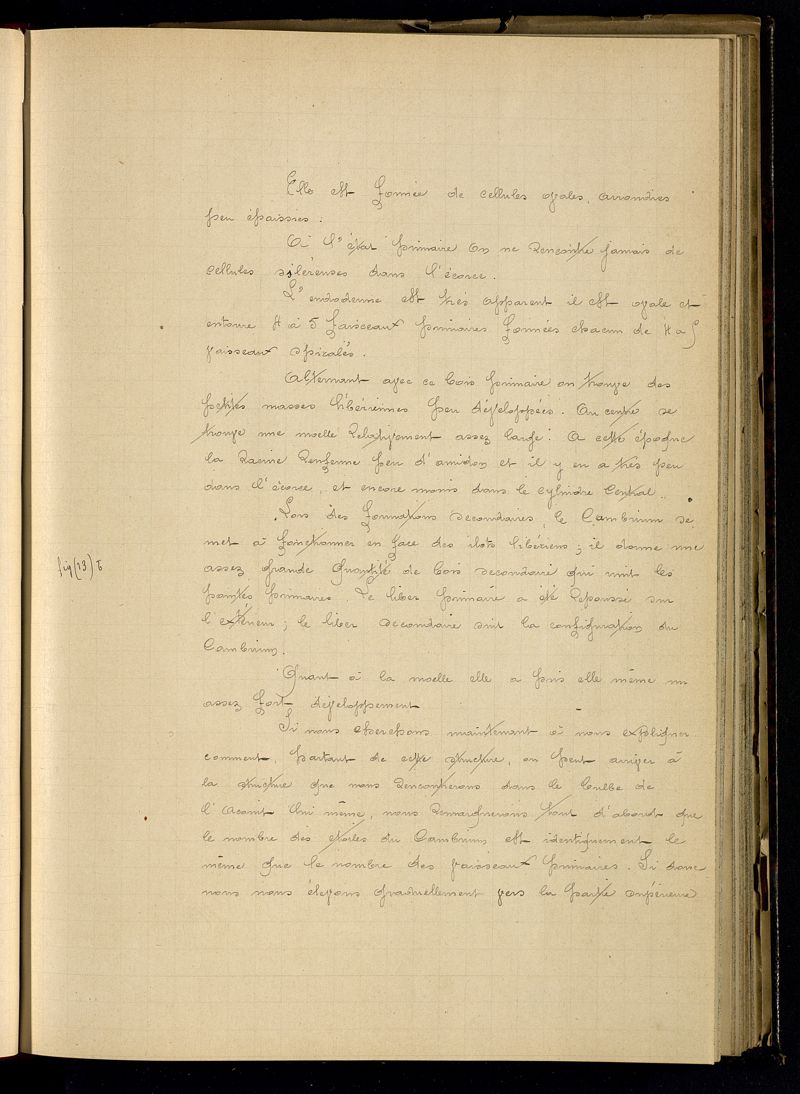 Elle est formée de cellules ovales, arrondies
peu épaisses.
A l'état primaire on ne rencontre jamais de
cellules scléreuses dans l'écorce.
L'endoderme est très apparent il est ovale et
entoure 4 à 5 faisceaux primaires formés chacun de 4 à 5
vaisseaux spiralés.
Alternant avec ce bois primaire on trouve des
petites masses libériennes peu développées. Au centre se
trouve une moelle relativement assez large. A cette époque
la racine renferme peu d'amidon et il y en a très peu
dans l'écorce, et encore moins dans le cylindre central.
Lors des formations secondaires, le Cambium se
met à fonctionner en face des ilots libériens; il donne une
fig (13) τ
assez grande quantité de bois secondaire qui unit les
pointes primaires. Le liber primaire a été repoussé sur
l'extérieur; le liber secondaire suit la configuration du
Cambium.
Quant à la moelle elle a pris elle même un
assez fort développement
Si nous cherchons maintenant à nous expliquer
comment, partant de cette structure, on peut arriver à
la structure que nous rencontrerons dans le bulbe de
l'Aconit lui même, nous remarquerons tout d'abord que
le nombre des étoiles du Cambium est identiquement le
même que le nombre des vaisseaux primaires. Si donc
nous nous élevons graduellement vers la partie supérieure